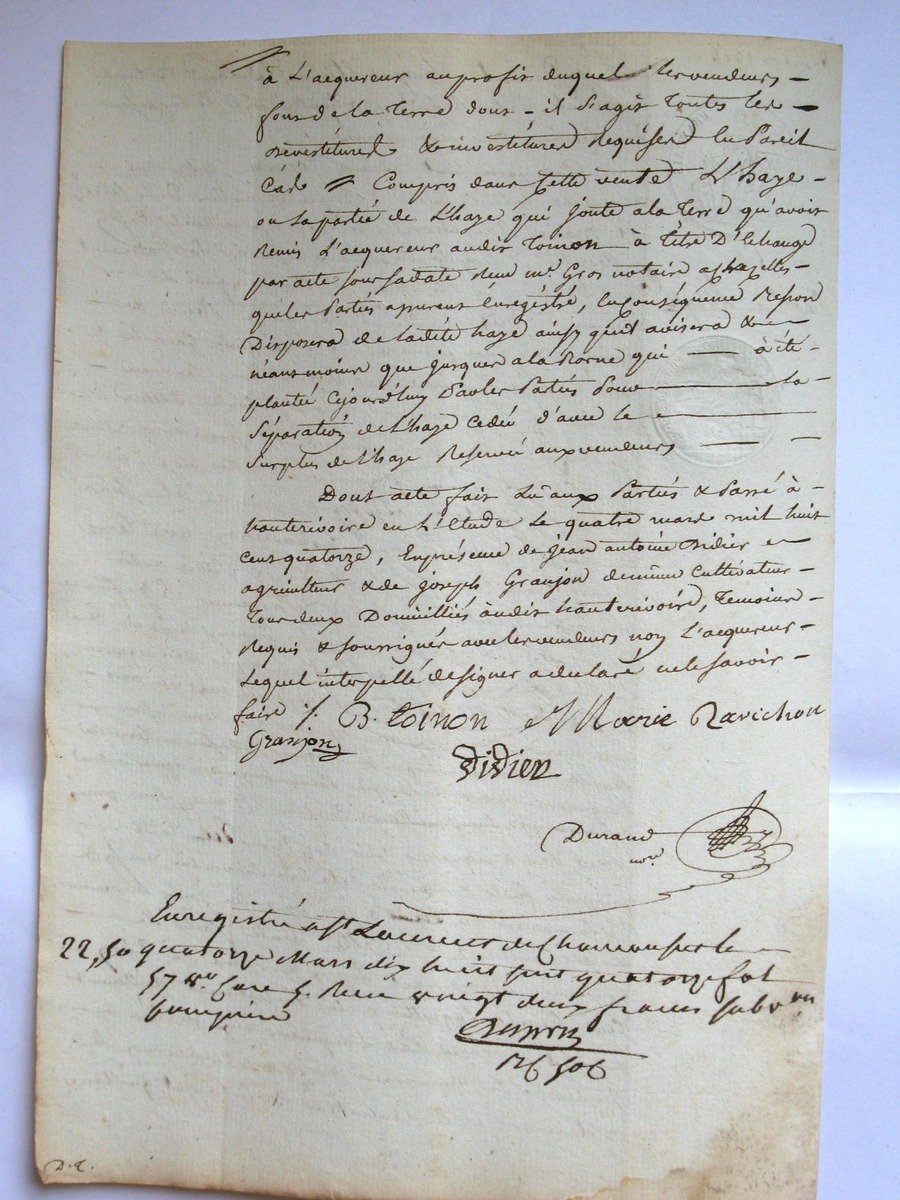 à L'acquereur au profit duquel les vendeurs
font de la Terre dont il s'agit Toutes les
devestitures & investitures Requises En Pareil
Cas // Compris dans Cette vente L'haye
ou la partie de L'haye qui joute a la Terre qu'avoit
Remis L'acquereur audit Toinon à Titre D'Echange
par acte sous sa date Reçu me. Gros notaire a
que les Parties assurent Enregistré, En Conséquence
Disposera de ladite haye ainsy qu'il avisera &
néanmoins que jusques a la Borne qui à été
plantée Cejourd'huy Par les Parties Pour la
Séparation de L'haye Cedée d'avec le
Surplus de L'haye Reservée aux vendeurs
Dont acte fait Lu aux Parties & Passé à
hauterivoire en L'Etude Le quatre mars mil huit
cent quatorze, En présence de jean antoine Didier
agriculteur & de joseph Granjon Cultivateur
Tous deux Domicilliés àudit hauterivoire, Temoins
Requis & soussignés avec les vendeurs non L'acquereur
Lequel interpellé de signer a déclaré ne le savoir
faire ./.
B. toinon Marie Zavichon
Granjon
Didier
Durand
nore
Enregistré a St Laurent de Chamousset le
22,50 quatorze Mars dix huit cent quatorze fol
57 Ro Case 5. Reçu vingt deux francs subvon
comprise
D.T.